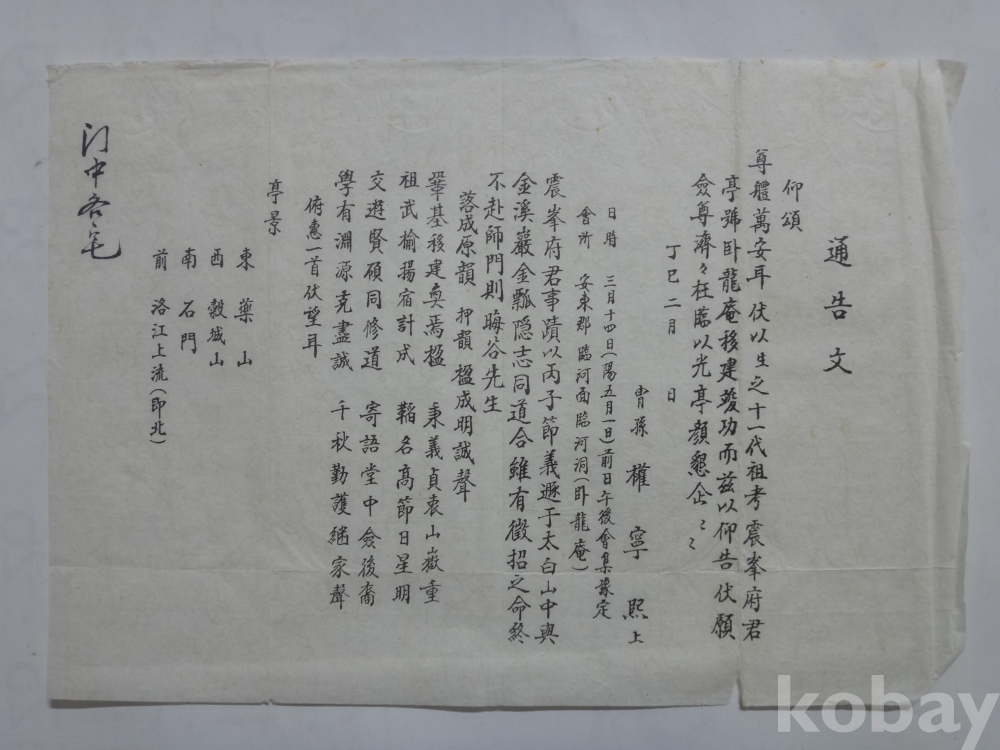 通告文
仰頌
尊體萬安耳 伏以生之十一代祖考震峯府君
亭號卧龍庵移建竣功而茲以仰告伏願
僉尊濟々枉臨以光亭顔懇企〻
丁巳二月 日
胄孫 權寧熙 上
日時 三月十四日(陽五月一日)前日午後會集豫定
會所 安東郡 臨河面臨河洞(卧龍庵)
震峯府君事蹟以丙子節義遯于太白山中與
金溪巖金瓢隱志同道合雖有徵招之命終
不赴師門則晦谷先生
落成原韻 押韻 楹成明誠聲
鞏基移建奐焉楹 秉義貞衷山嶽重
祖武揄揚宿計成 韜名高節日星明
交遊賢碩同修道 寄語堂中僉後裔
學有淵源克盡誠 千秋勤護継家聲
俯惠一首伏望耳
亭景
東 藥山
西 毅城山
南 石門
前 洛江上流(即北)
门中各宅
kobay